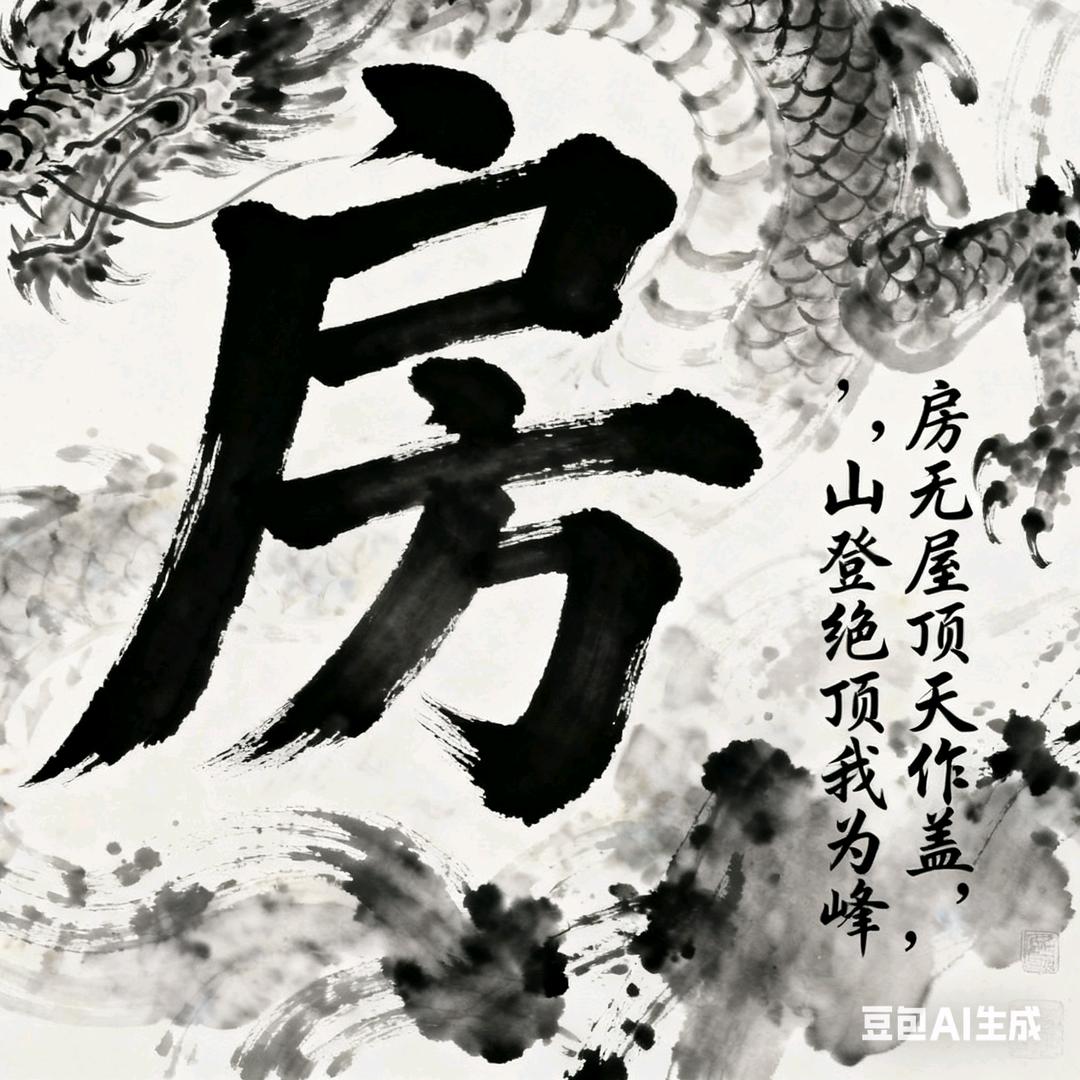 房
房无屋顶天作盖，
，山登绝顶我为峰，
豆包AI生成